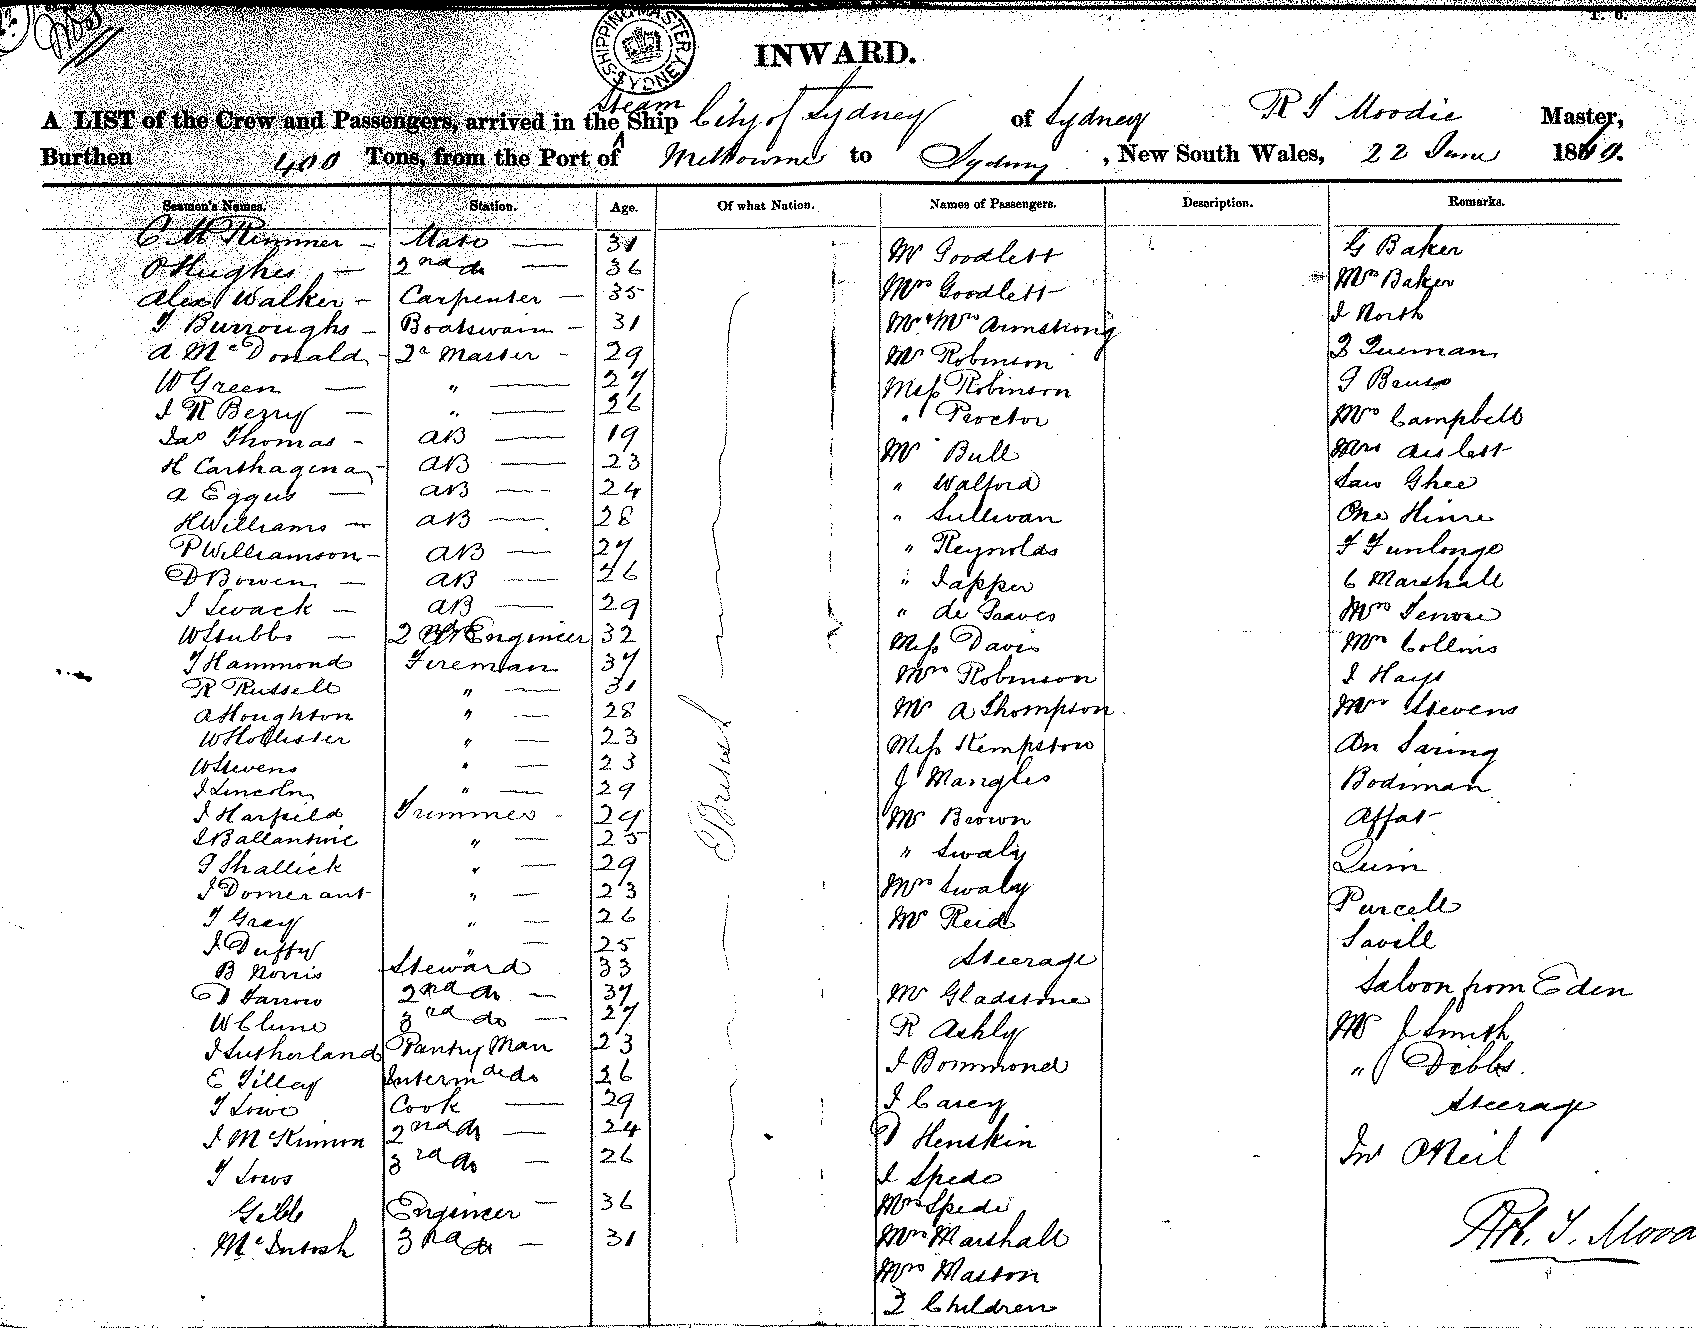 SHIPPING MASTER SYDNEY
INWARD.
Steam
A LIST of the Crew and Passengers, arrived in the Ship City of Sydney of Sydney R T Moodie Master,
Burthen 400 Tons, from the Port of Melbourne to Sydney, New South Wales, 22 June 18
Seamen's Names. Station. Age. Of what Nation. Names of Passengers. Description. Remarks.
C M Rimmer - Mate — 31 Mr Goodlett G Baker
O Hughes — 2nd do — 36 Mrs Goodlett Mrs Baker
Alex Walker - Carpenter — 35 Mr & Mrs Armstrong J North
T Burroughs - Boatswain - 31 Mr Robinson
A McDonald - Qr Master - 29 Miss Robinson
W Green — " — 27 " Proctor Mrs Campbell
J R Berry — " — 26 Mr Bull Mrs Aislett
Jas Thomas - AB — 19 " Walford Ghee
H Carthagena - AB — 23 " Sullivan One
A Eggus — AB — 24 " Reynolds F Furlonge
H Williams — AB — 28 " Tapper C Marshall
P Williamson - AB — 27 " de Graves Mrs
D Bowen — AB — 26 Miss Davis Mrs Collins
J Swack — AB — 29 Mrs Robinson J Hays
W Stubbs — 2nd Engineer 32 Mr A Thompson Mrs Stevens
T Hammond Fireman 37 Miss Kempstow
R Russell " — 31 J Mangles Bodiman
A Houghton " — 28 Mr Brown Affat
W Hollister " — 23 " Swaly Quin
W Stevens " — 23 Mrs Swaly Purcell
J Lincoln " — 29 Mr Reid Savill
J Harfield Trimmer - 29 Steerage Saloon from Eden
J Ballantine " — 25 Mr Gladstone Mr J Smith
T Shallick " — 29 R Ashly " Dibbs.
J Domerant " — 23 J Bommond Steerage
T Gray " — 26 J Casey Jno ONeil
J Duffy " — 25 D Henskin
B Norris Steward 33 J Spede
D Farrow 2nd do — 37 Mrs Spede
W Clune 3rd do — 27 Mrs Marshall
J Sutherland Pantry Man 23 Mrs Maston
E Tilley Intermde do 26 Children
T Lowe Cook — 29
J McKinnon 2nd do — 24
T Lows 3rd do — 26
Gibb Engineer — 36
McIntosh 3rd do — 31
British